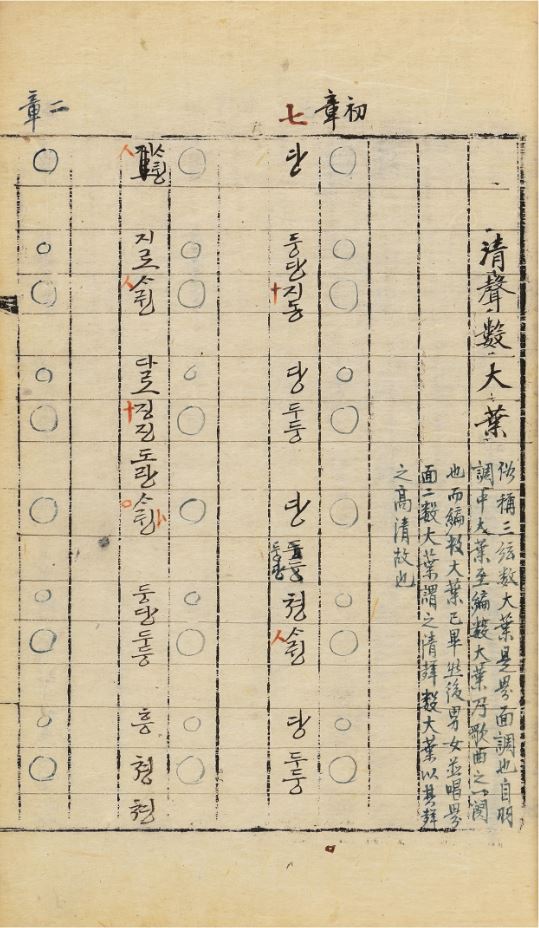 淸聲數大葉
俗稱三絃數大葉是界面調也自羽
調中大葉至編數大葉乃歌曲之一闋
也而編數大葉已畢然後男女並唱界
面二數大葉謂之淸聲數大葉以其聲
之高淸故也
初章 七
당
둥당
지동
당
두둥
당
청
당
두둥
지로
다로
징
진
도랑
둥당
두둥
흥
청
청
二章